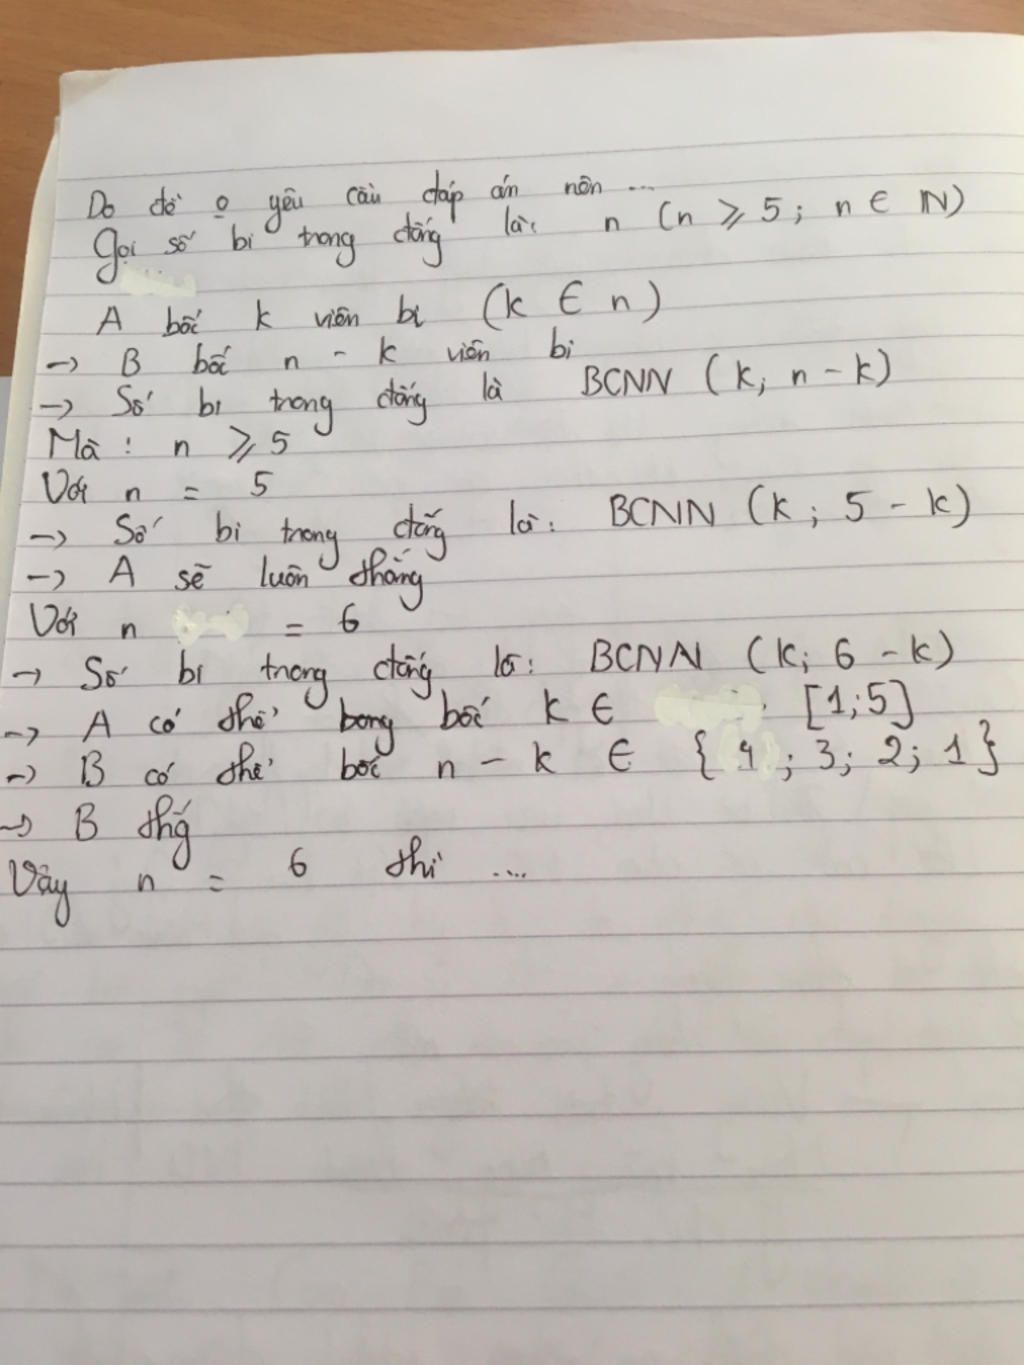 Do đề o yêu cầu đáp án nên ...
Gọi số bi trong đống là: n (n ⩾ 5; n ∈ N)
A bốc k viên bi (k ∈ n)
→ B bốc n - k viên bi
→ Số bi trong đống là BCNN (k; n - k)
Mà : n ⩾ 5
Với n = 5
→ Số bi trong đống là: BCNN (k; 5 - k)
→ A sẽ luôn thắng
Với n = 6
→ Số bi trong đống là: BCNN (k; 6 - k)
→ A có thể bong bốc k ∈ [1;5]
→ B có thể bốc n - k ∈ {4; 3; 2; 1}
→ B thắg
Vậy n = 6 thì ....